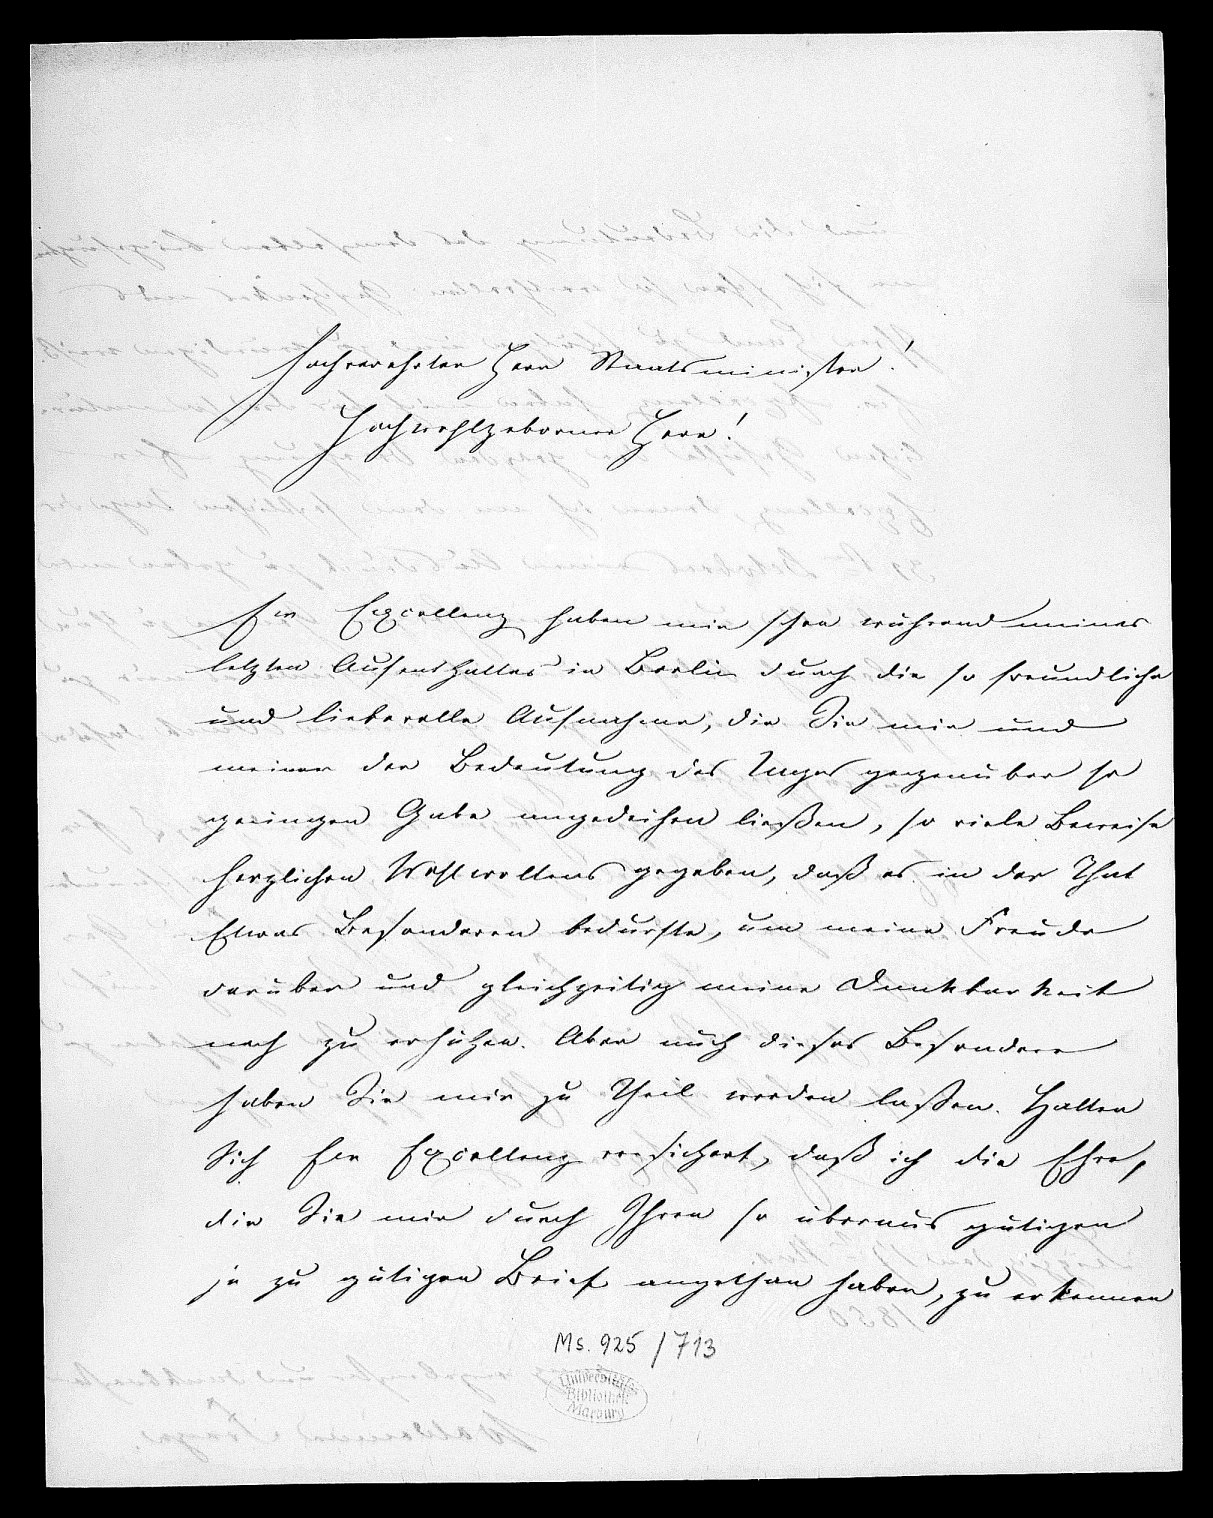 Hochverehrter Herr Staatsminister!
Hochwohlgeborner Herr!
Ew Excellenz haben mir schon während meines
letzten Aufenthaltes in Berlin durch die so freundliche
und liebevolle Aufnahme, die Sie mir und
meiner der Bedeutung des Tages gegenüber so
geringen Gabe angedeihen ließen, so viele Beweise
herzlichen Wohlwollens gegeben, daß es in der That
Etwas Besonderen bedurfte, um meine Freude
darüber und gleichzeitig meine Dankbarkeit
noch zu erhöhen. Aber auch dieses Besondere
haben Sie mir zu Theil werden laßen. Halten
Sich Ew Excellenz versichert, daß ich die Ehre,
die Sie mir durch Ihren so überaus gütigen
ja zu gütigen Brief angethan haben, zu erkennen
Ms. 925 / 713
Universitäts
Bibliothek
Marburg